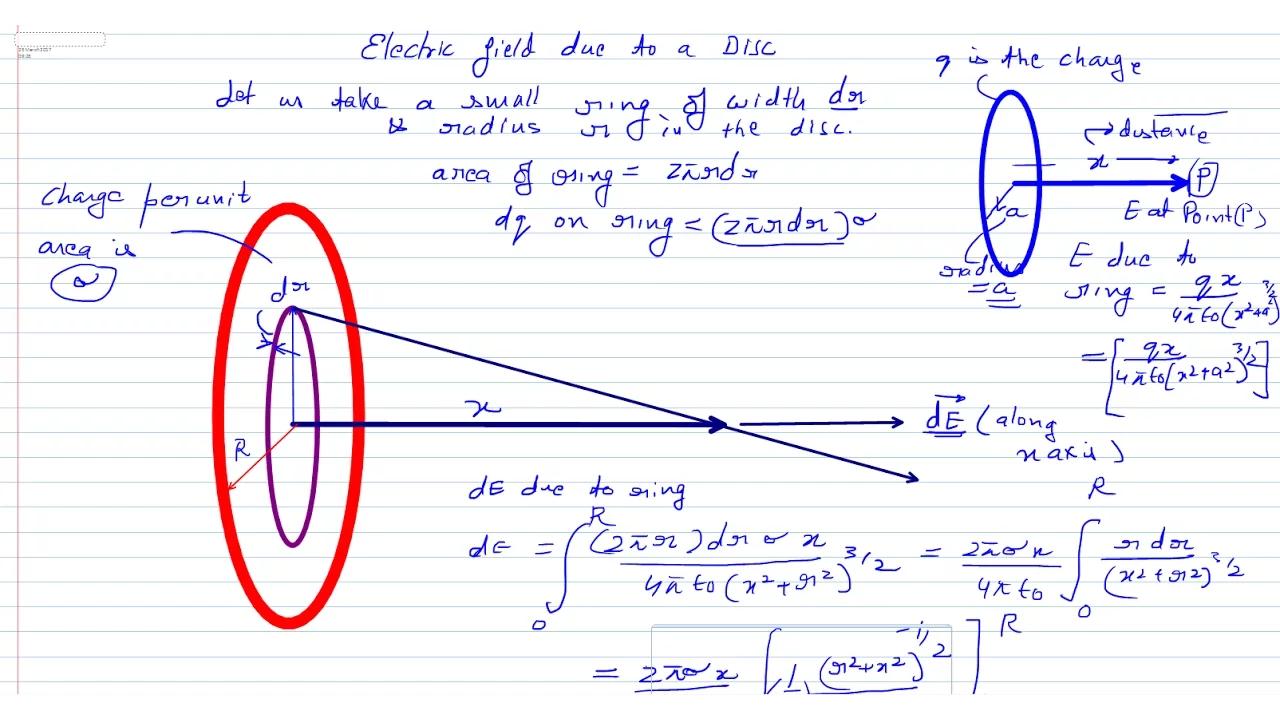 28 March 2017
Electric field due to a Disc
Let us take a small ring of width dr
& radius r in the disc.
area of ring = 2πrdr
dq on ring = (2πrdr)σ
Charge per unit
area is
σ
dr
R
x
dE (along
x axis)
q is the charge
distance
x
P
a
E at Point(P)
radius
= a
E due to
ring = qx / 4πε0(x²+a²)^3/2
= [qx / 4πε0(x²+a²)^3/2]
dE due to ring
dE = ∫₀ᴿ (2πr)dr σ x / 4πε0(x²+r²)^3/2 = 2πσx / 4πε0 ∫₀ᴿ r dr / (x²+r²)^3/2
= 2πσx [1 (r²+x²)^-1/2 ]ᴿ